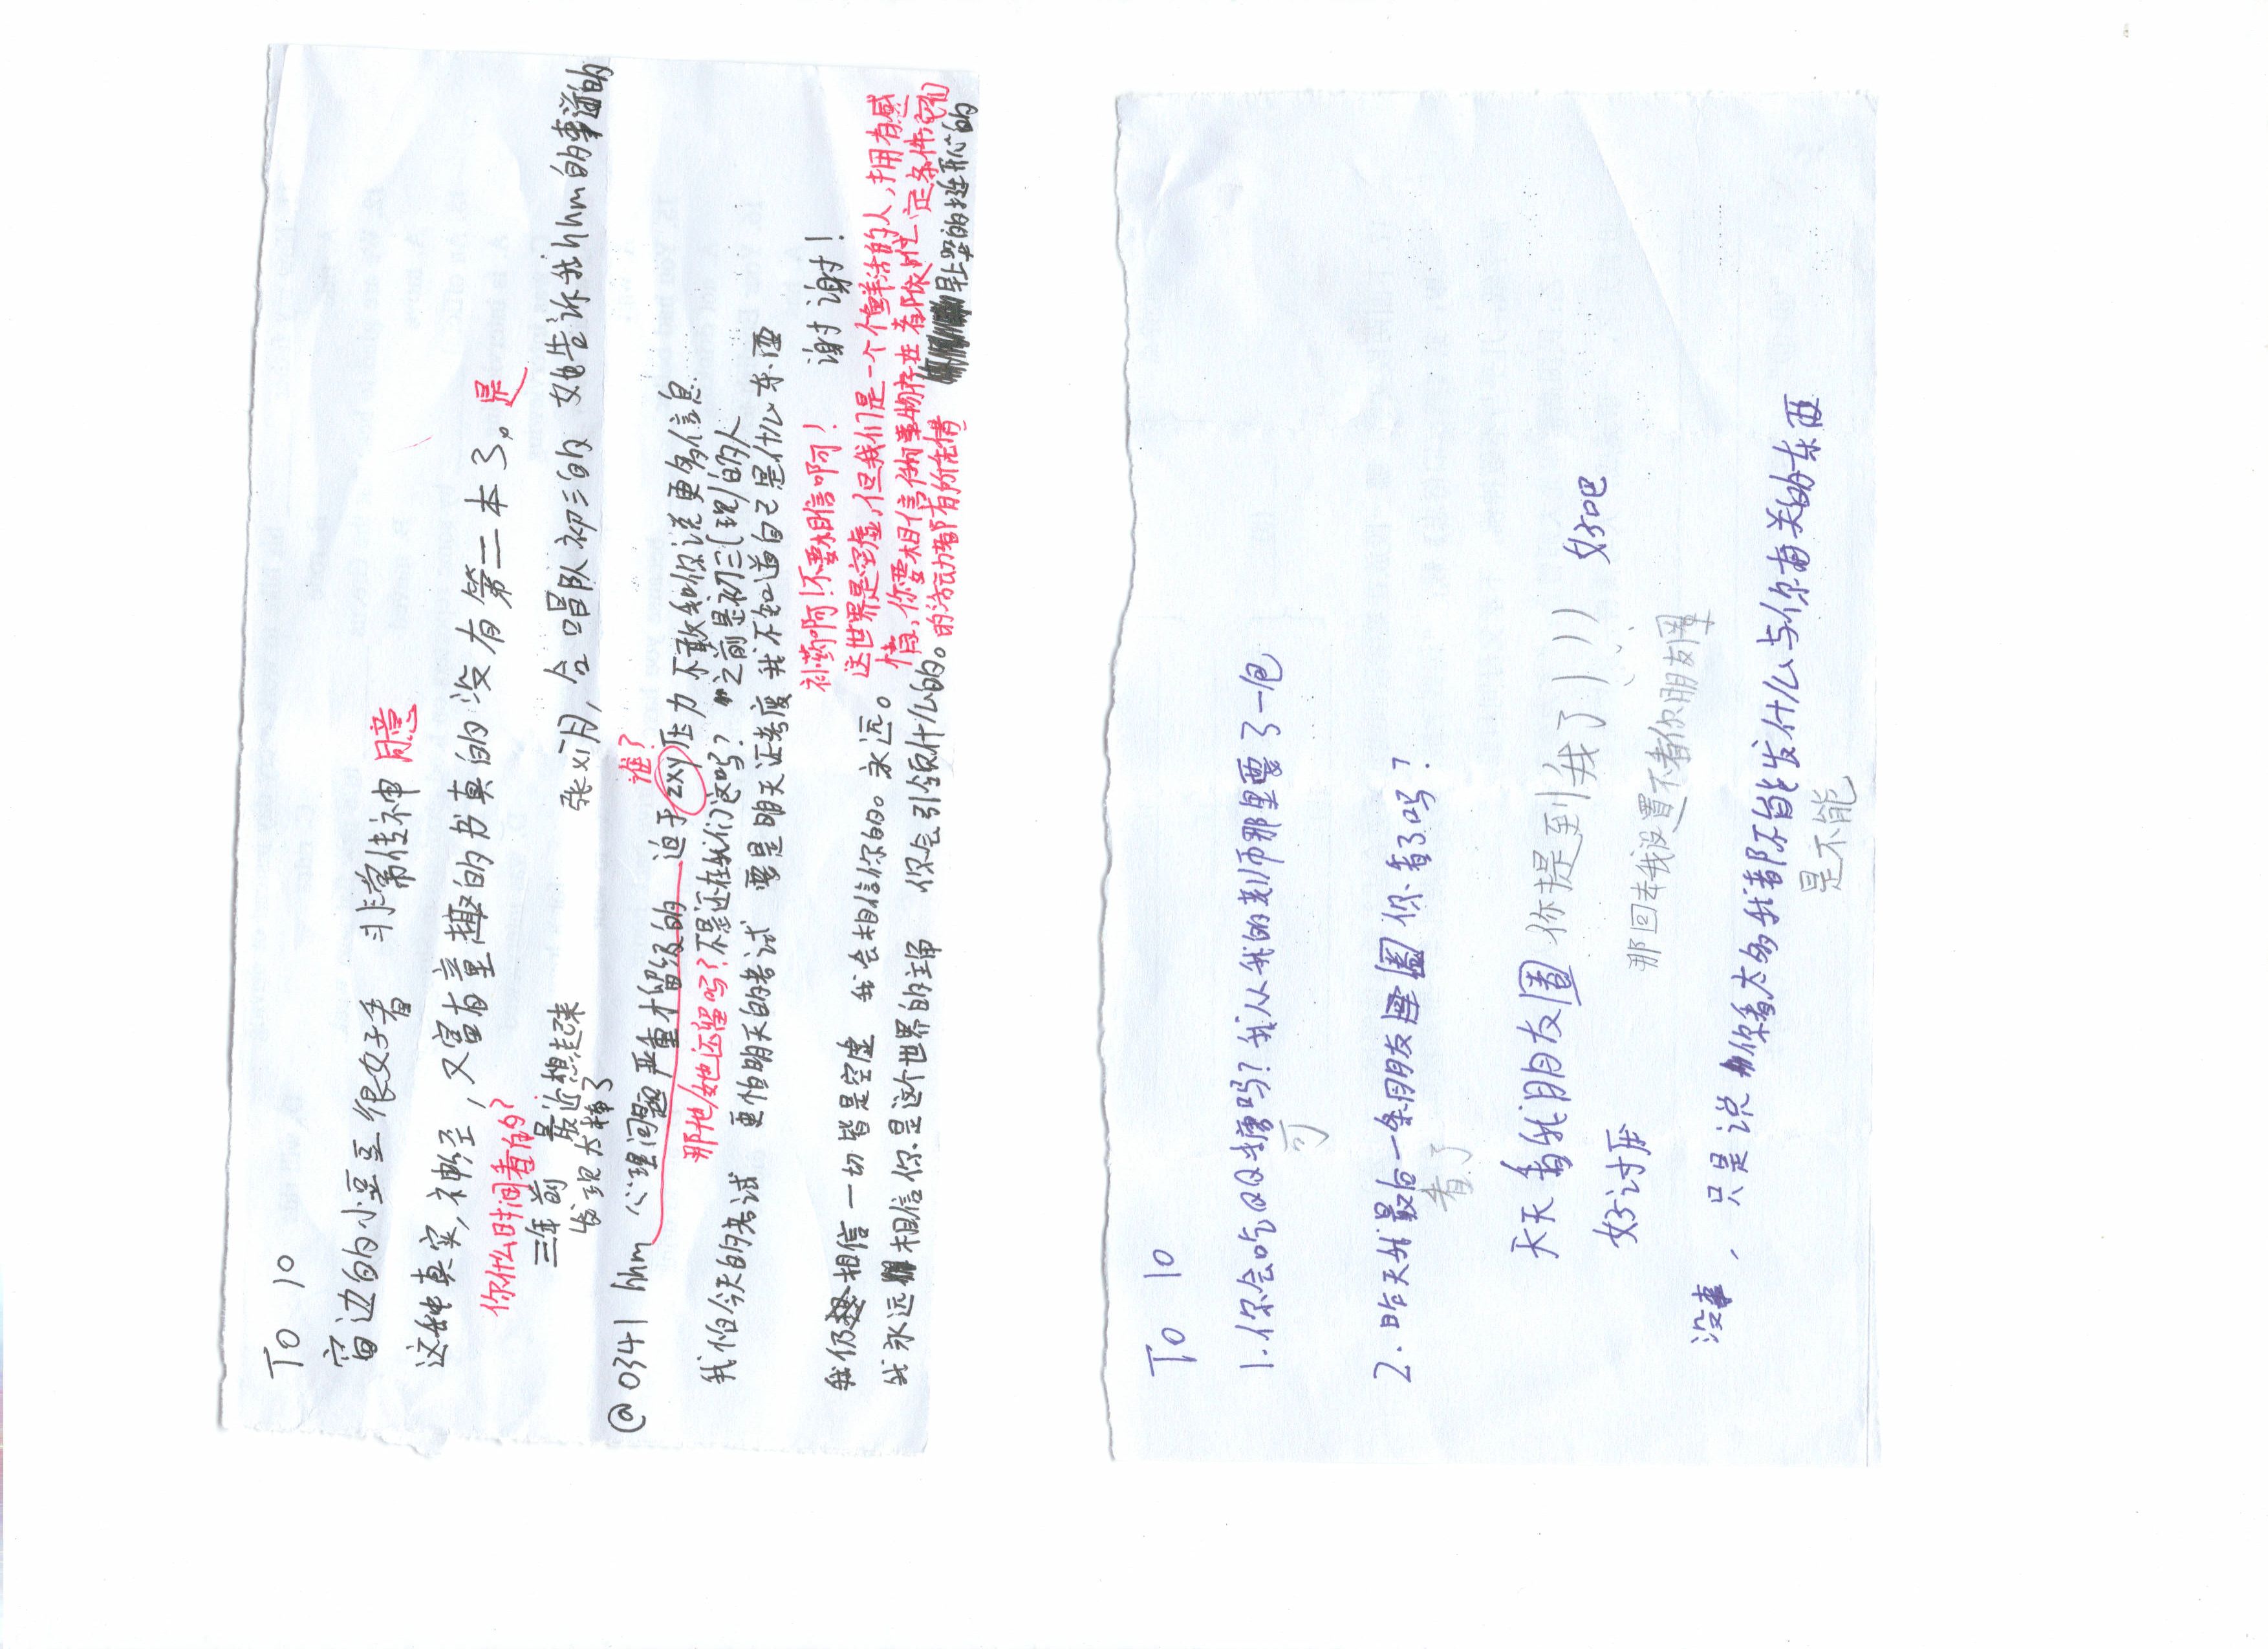 To 10
窗边的小豆豆很好看 非常传神 同意
这种真实,神经,又富有童趣的书真的没有第二本了。是
你什么时间看的?
三年前 最近想起来
发现太棒了
张xi月,合唱队初三的 她告诉我hhm的事的
@0341 hhm 心理问题严重才留级的 迫于zxy压力 不敢和你说更多信息
谁?
那他/她还留吗?不是还在我们这吗?之前是初三(现)的人
我怕今天的考试 更怕明天的考试 要是明天证考废 我不知道自己是什么东西
补药啊!不要相信啊! 谢谢!
这世界是空虚,但我们是一个个鲜活的人,拥有感
情,你要相信任何事物存在着限时性,一定条件它们
的活动都有所凭借
我仍相信一切皆是空虚 我会相信你的。永远。
我永远相信你是这个世界的主角 你会引领什么的。
早上哭的挺开心的
To 10
1.你会吃QQ糖吗?我从我的老师那里要了一包
可
2.昨天我最后一条朋友圈你看了吗?
看了
天天看我朋友圈 你提到我了))) 好吧
好讨厌
那回去我设置不看你朋友圈
没事,只是说你看太多我都不能发什么与你有关的东西
是不能